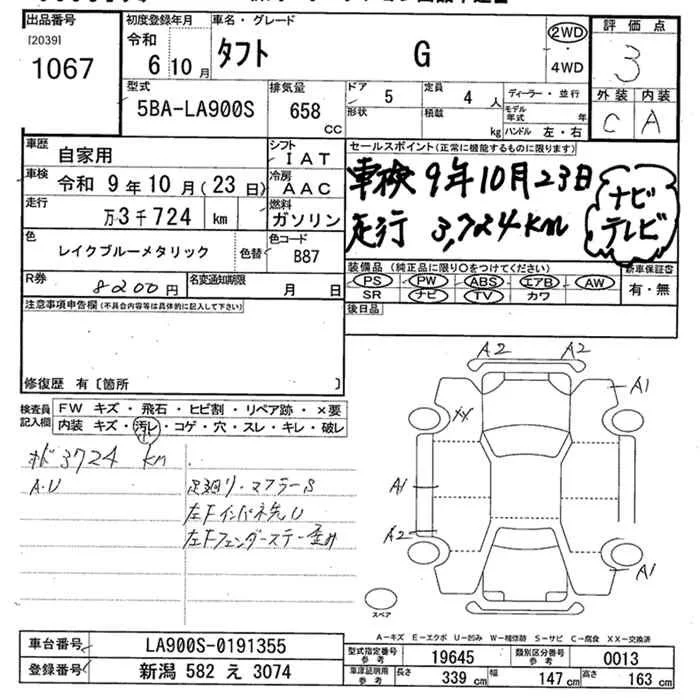 出品番号
[2039]
1067
初度登録年月
令和
6年10月
車名・グレード
タフト G
2WD
・
4WD
評価点
3
外装 内装
C A
型式
5BA-LA900S
排気量
658
cc
ドア
5
形状
定員
4人
積載
kg
ディーラー・並行
モデル年式 年
ハンドル 左・右
車歴
自家用
シフト
IAT
車検
令和 9年10月(23日)
冷房
AAC
走行
万3千724 km
燃料
ガソリン
色
レイクブルーメタリック
色替
色コード
B87
R券
8200円
名変通知期限
月 日
セールスポイント(正常に機能するものに限ります)
車検 9年10月23日
走行 3,724km
ナビ
テレビ
装備品 (純正品に限り○をつけてください)
PS PW ABS エアB AW
SR ナビ TV カワ
新車保証書
有・無
後日品
注意事項申告欄(不具合内容等は具体的に記入して下さい)
修復歴 有〔箇所 〕
検査員
記入欄
FW キズ・飛石・ヒビ割・リペア跡・×要
内装 キズ・汚レ・コゲ・穴・スレ・キレ・破レ
3724 km
A・U
足廻り・マフラーS
左Fインパネ先U
左Fフェンダーステー歪み
A2 A2
A1
XX
A1
A2
A1
スペア
A-キズ E-エクボ U-凹み W-補修跡 S-サビ C-腐食 XX-交換済
車台番号
LA900S-0191355
登録番号
新潟 582 え 3074
型式指定番号
参考
19645
類別区分番号
参考
0013
車庫証明
参考
長さ 339 cm
幅 147 cm
高さ 163 cm